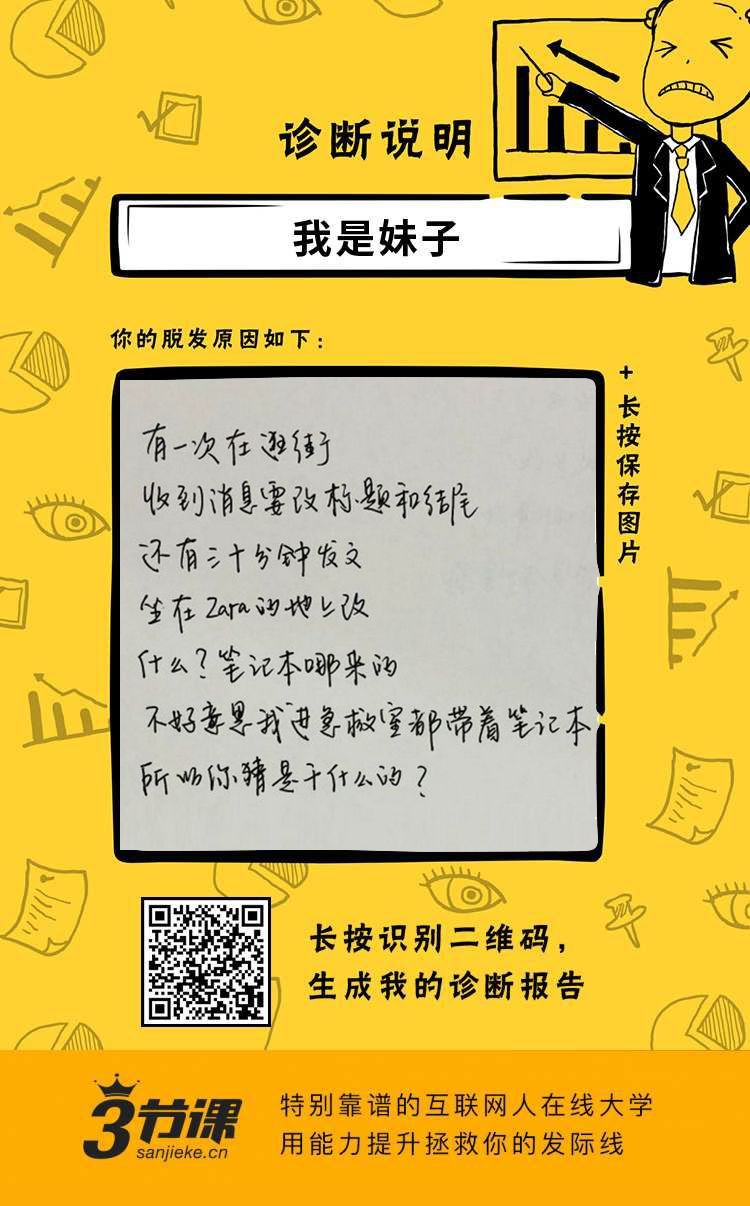 诊断说明
我是妹子
你的脱发原因如下：
+长按保存图片
有一次在逛街
收到消息要改标题和结尾
还有三十分钟发文
坐在Zara的地上改
什么？笔记本哪来的
不好意思我进急救室都带着笔记本
所以你猜是干什么的？
长按识别二维码，
生成我的诊断报告
3节课
sanjieke.cn
特别靠谱的互联网人在线大学
用能力提升拯救你的发际线